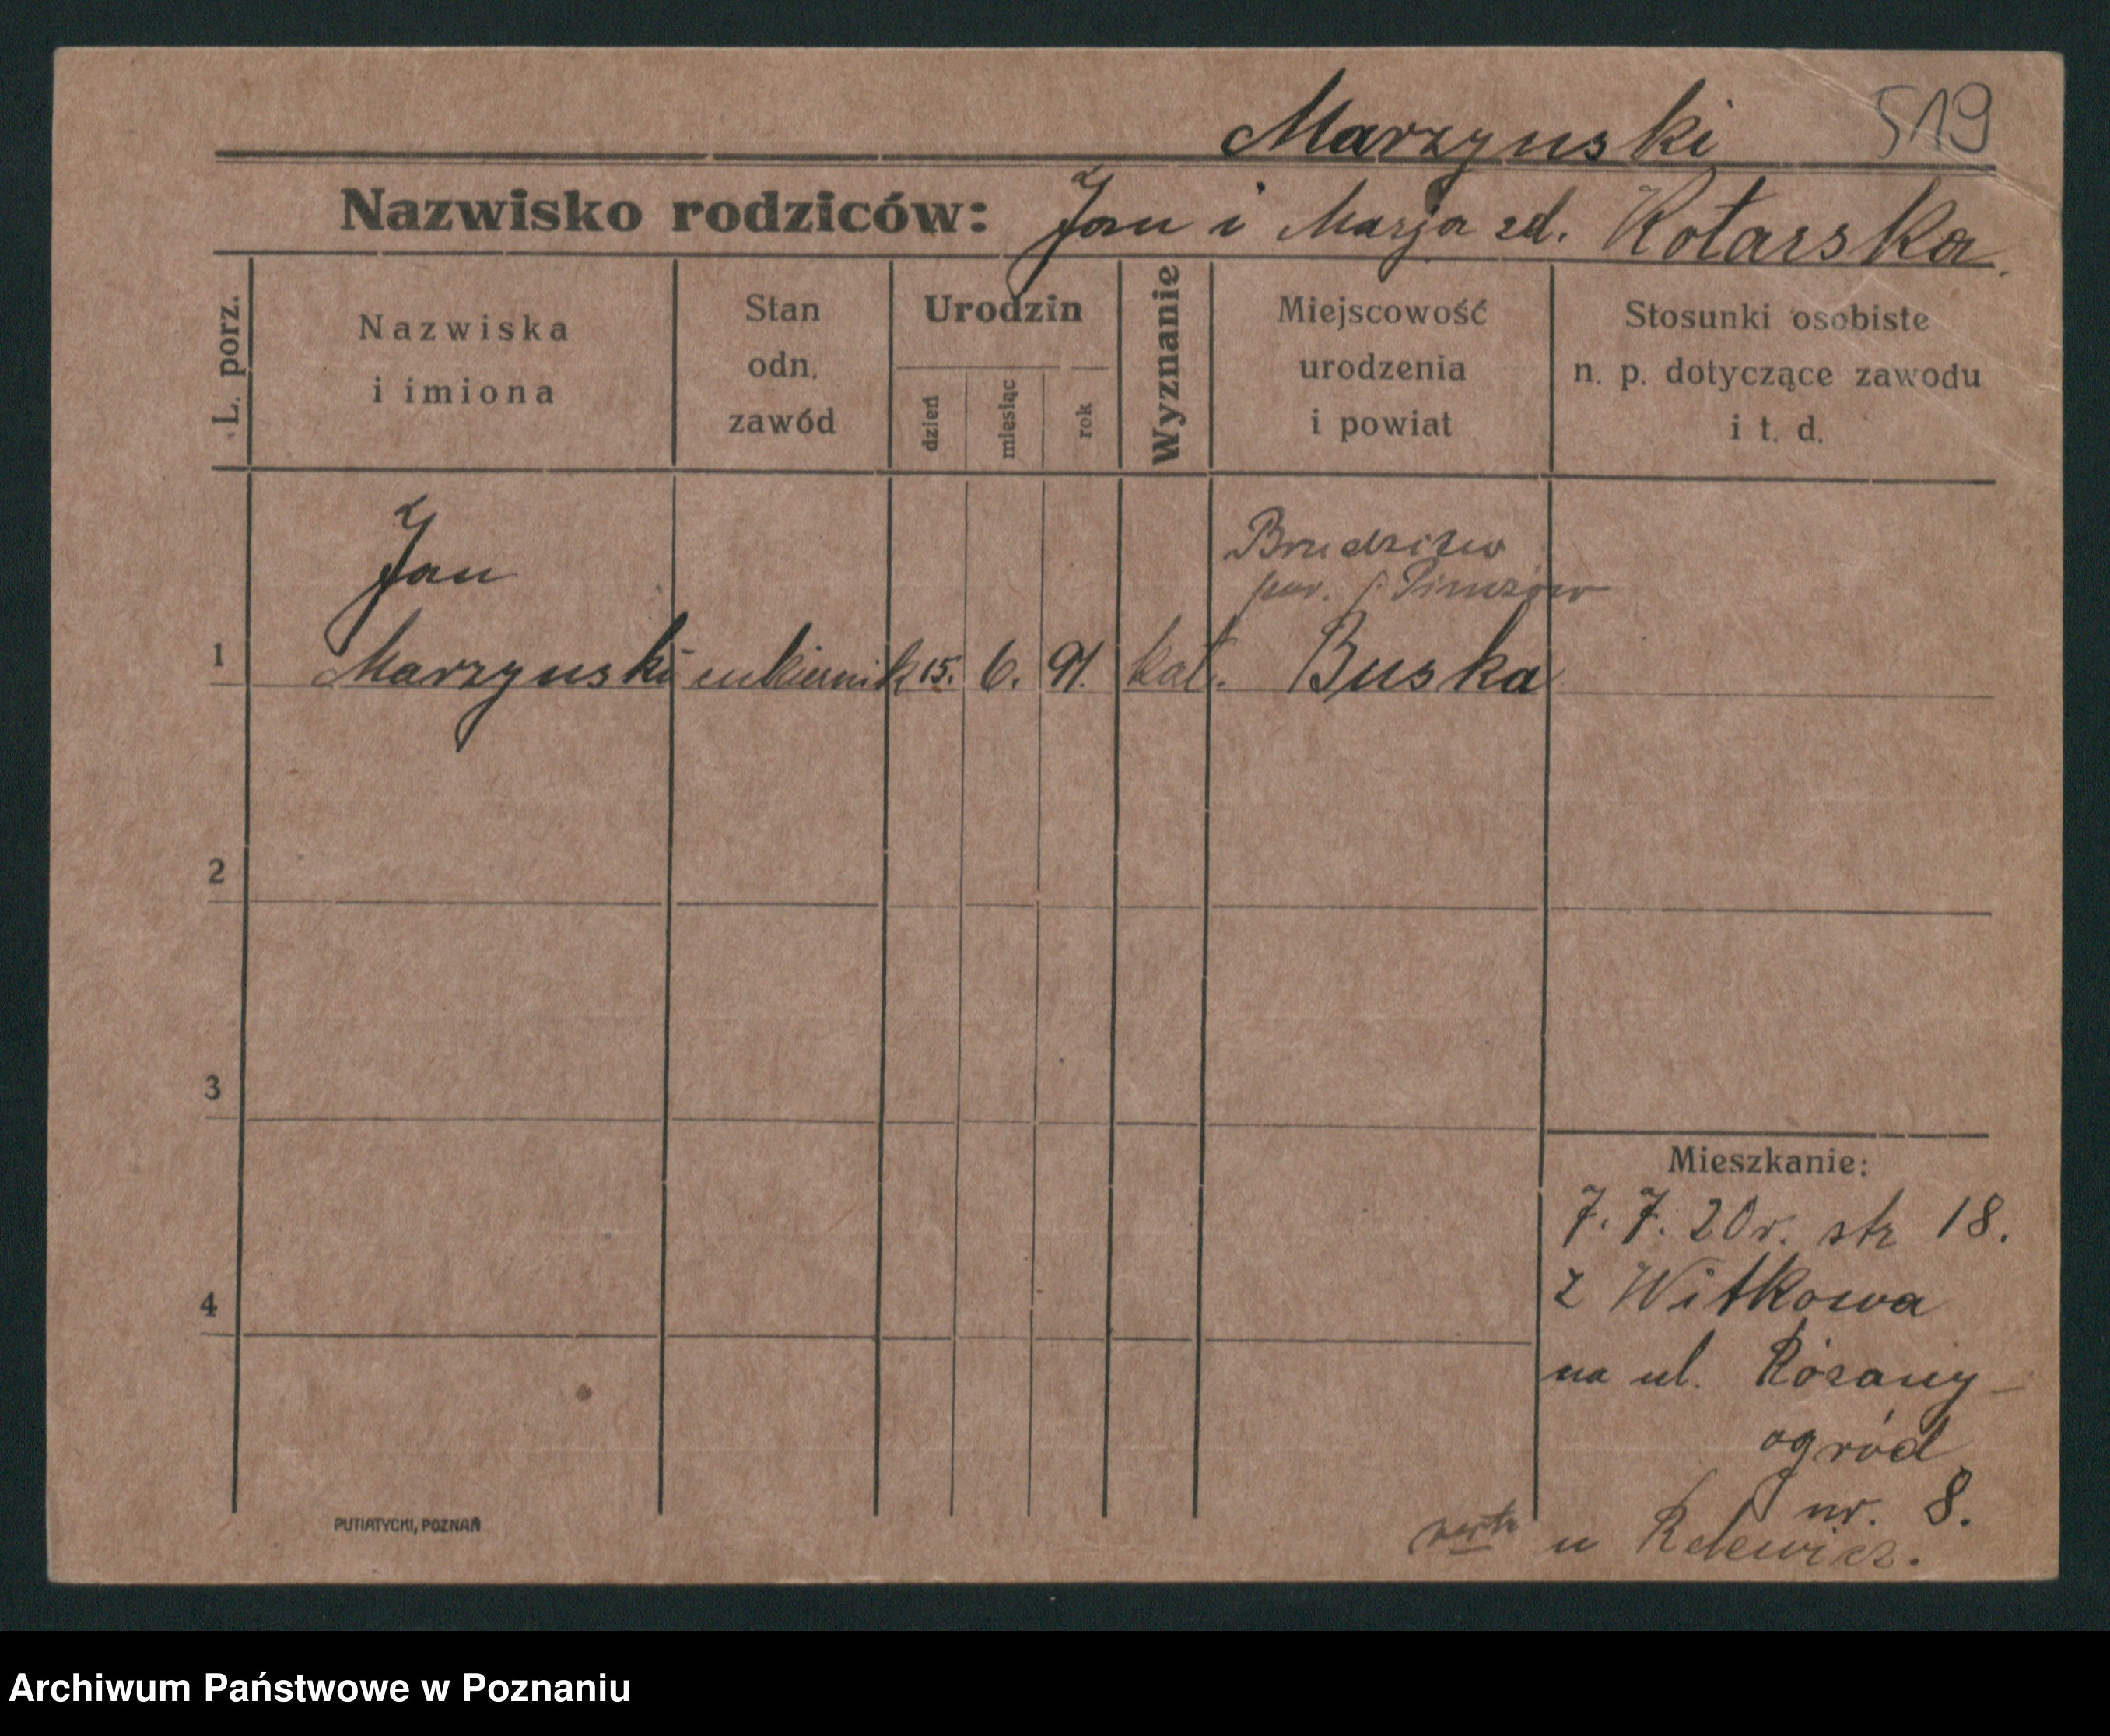 519
Marzynski
Nazwisko rodziców: Jan i Marja zd. Kotarska.
L. porz.
Nazwiska
i imiona
Stan
odn.
zawód
Urodzin
dzień
miesiąc
rok
Wyznanie
Miejscowość
urodzenia
i powiat
Stosunki osobiste
n. p. dotyczące zawodu
i t. d.
Jan
Brudzisw
pow. Pinczow
1 Marzynski cukiernik 15. 6. 91. kat. Buska
2
3
4
Mieszkanie:
7. 7. 20 r. str 18.
z Witkowa
na ul. Rózany-
ogród
nr. 8.
u
PUTIATYCKI, POZNAŃ
Archiwum Państwowe w Poznaniu